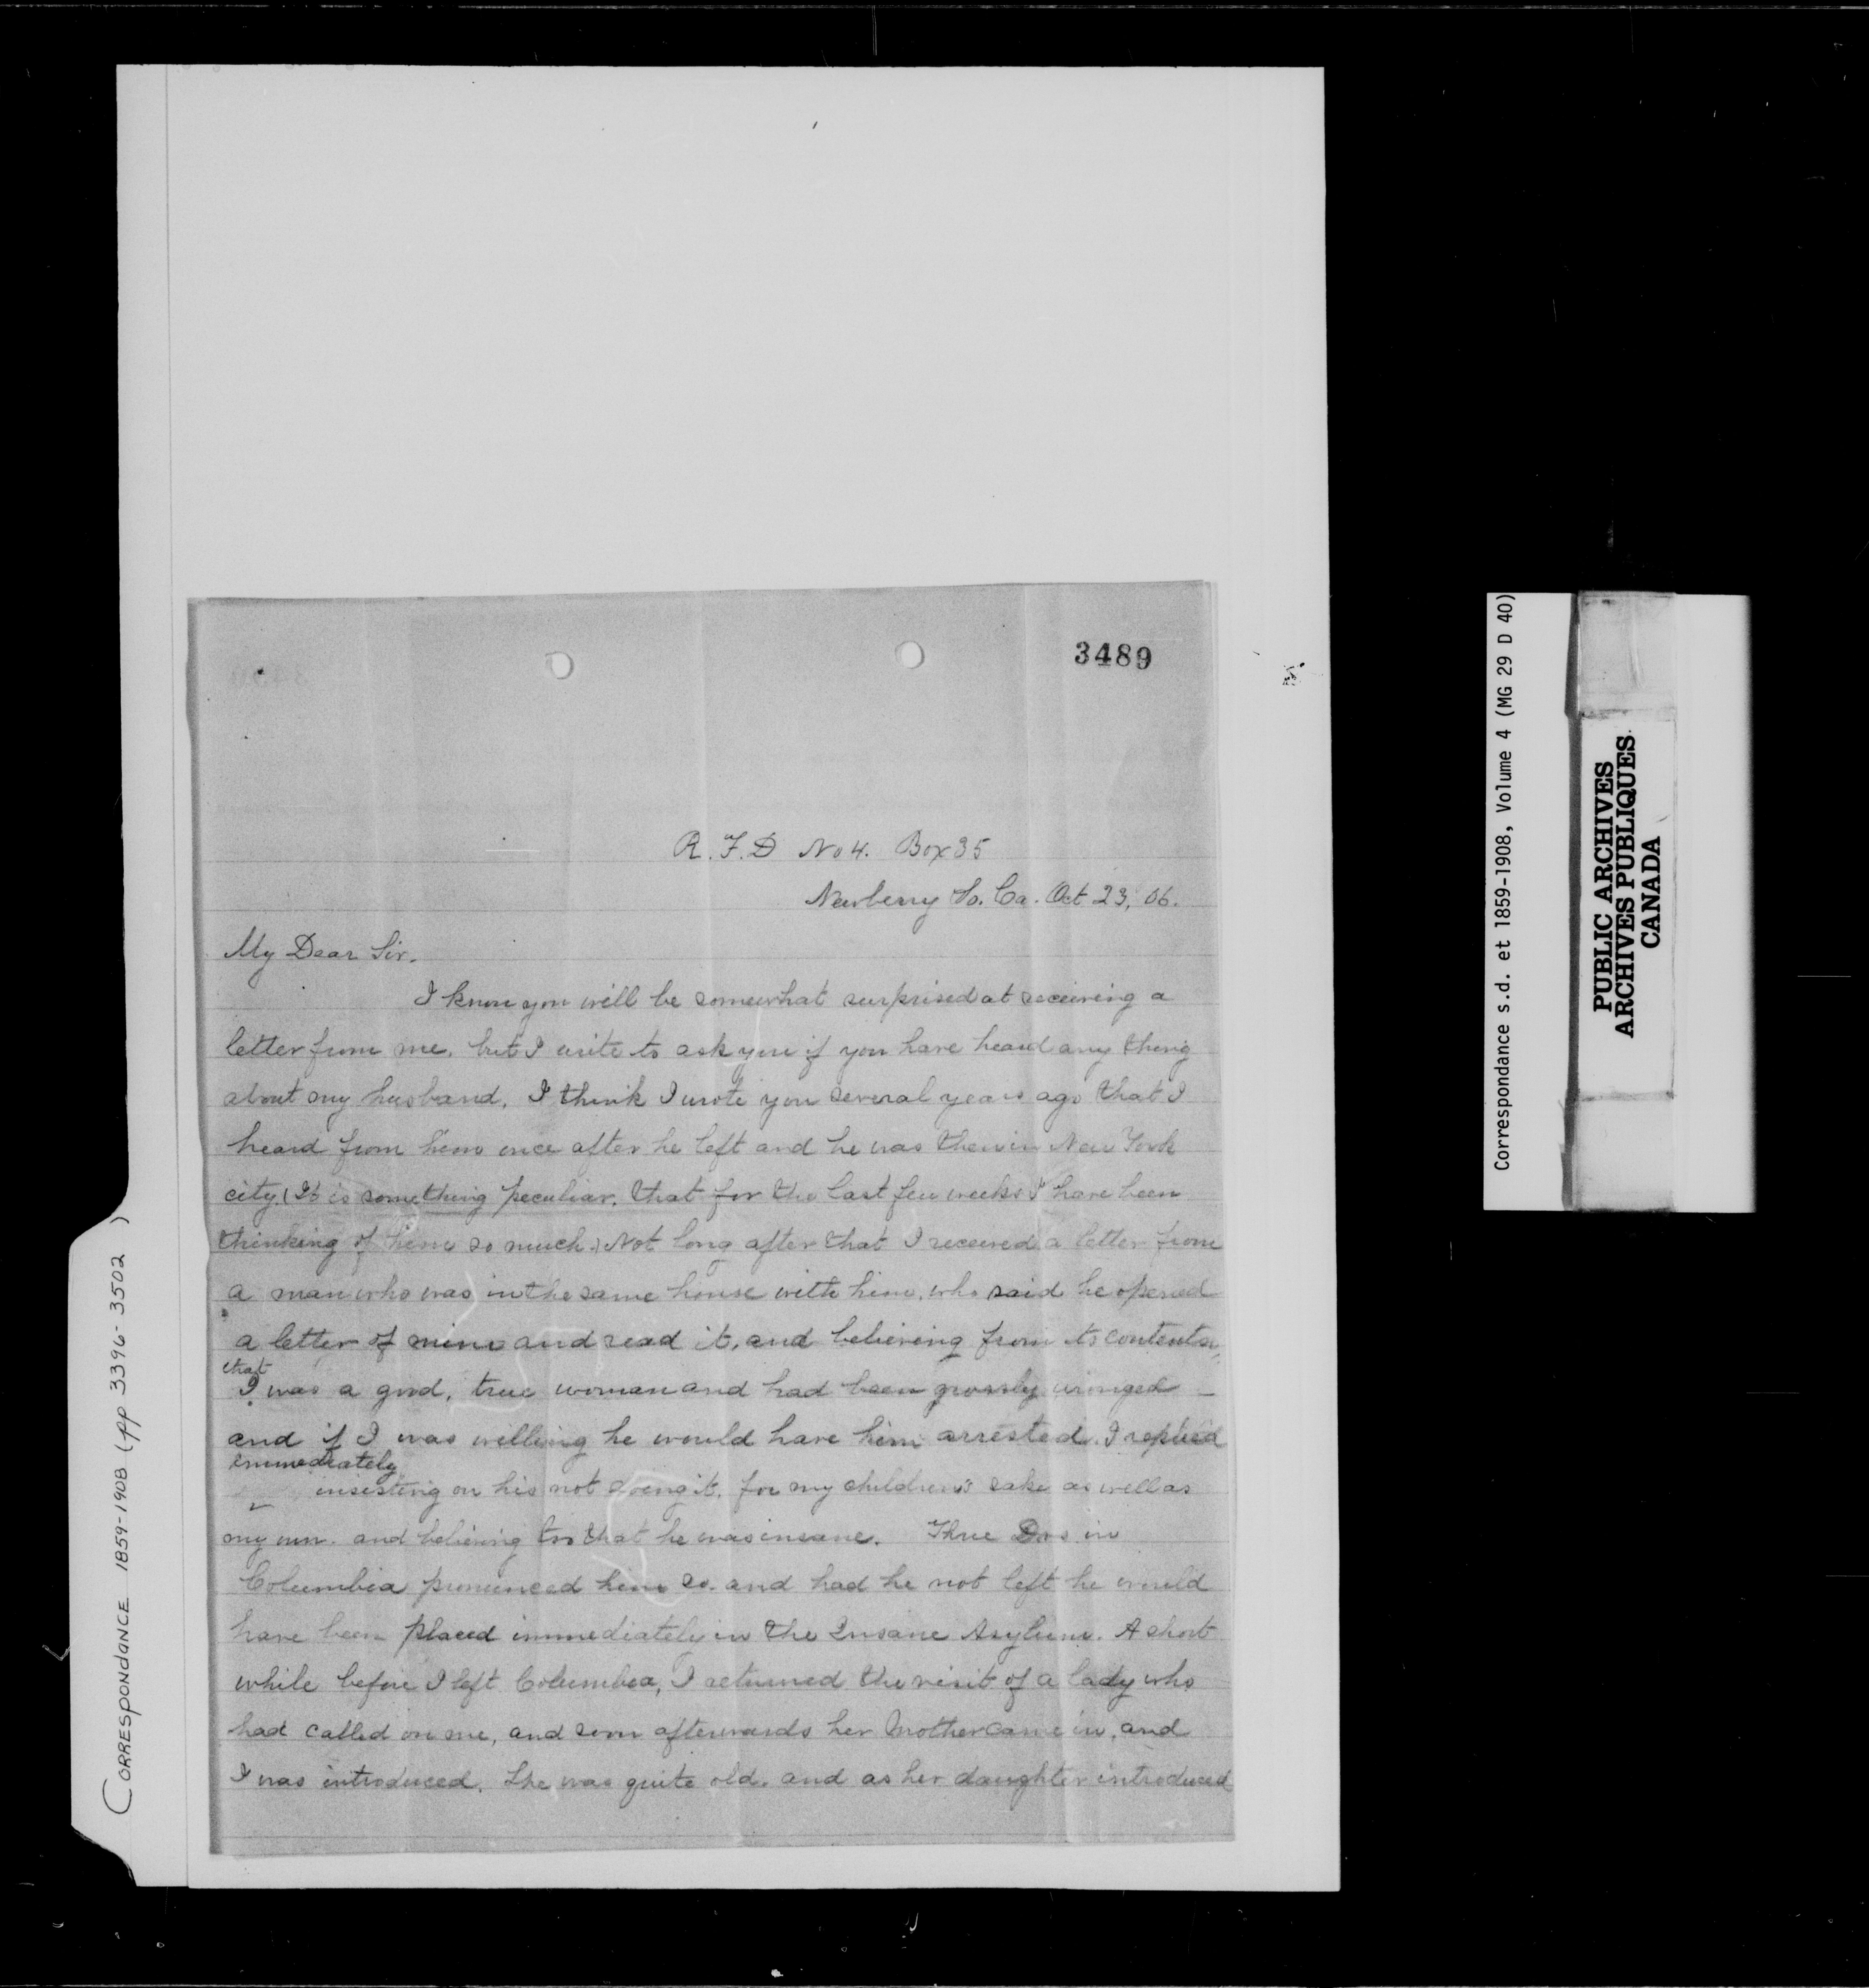 3489
R. F. D No 4. Box 35
Newberry So. Ca. Oct 23, 06.
My Dear Sir.
I know you will be somewhat surprised at receiving a
letter from me, but I write to ask you if you have heard any thing
about my husband. I think I wrote you several years ago that I
heard from him once after he left and he was then in New York
city. (It is something peculiar, that for the last few weeks I have been
thinking of him so much.) Not long after that I received a letter from
a man who was in the same house with him, who said he opened
a letter of mine and read it, and believing from its contents,
that
I was a good, true woman and had been grossly wronged —
and if I was willing he would have him arrested. I replied
immediately
insisting on his not doing it, for my children's sake as well as
my own. and believing too that he was insane. Three Drs in
Columbia pronounced him so. and had he not left he would
have been placed immediately in the Insane Asylum. A short
while before I left Columbia, I returned the visit of a lady who
had called on me, and soon afterwards her Mother came in, and
I was introduced. She was quite old. and as her daughter introduced
CORRESPONDANCE 1859-1908 (pp 3396-3502)
Correspondance s.d. et 1859-1908, Volume 4 (MG 29 D 40)
PUBLIC ARCHIVES
ARCHIVES PUBLIQUES
CANADA